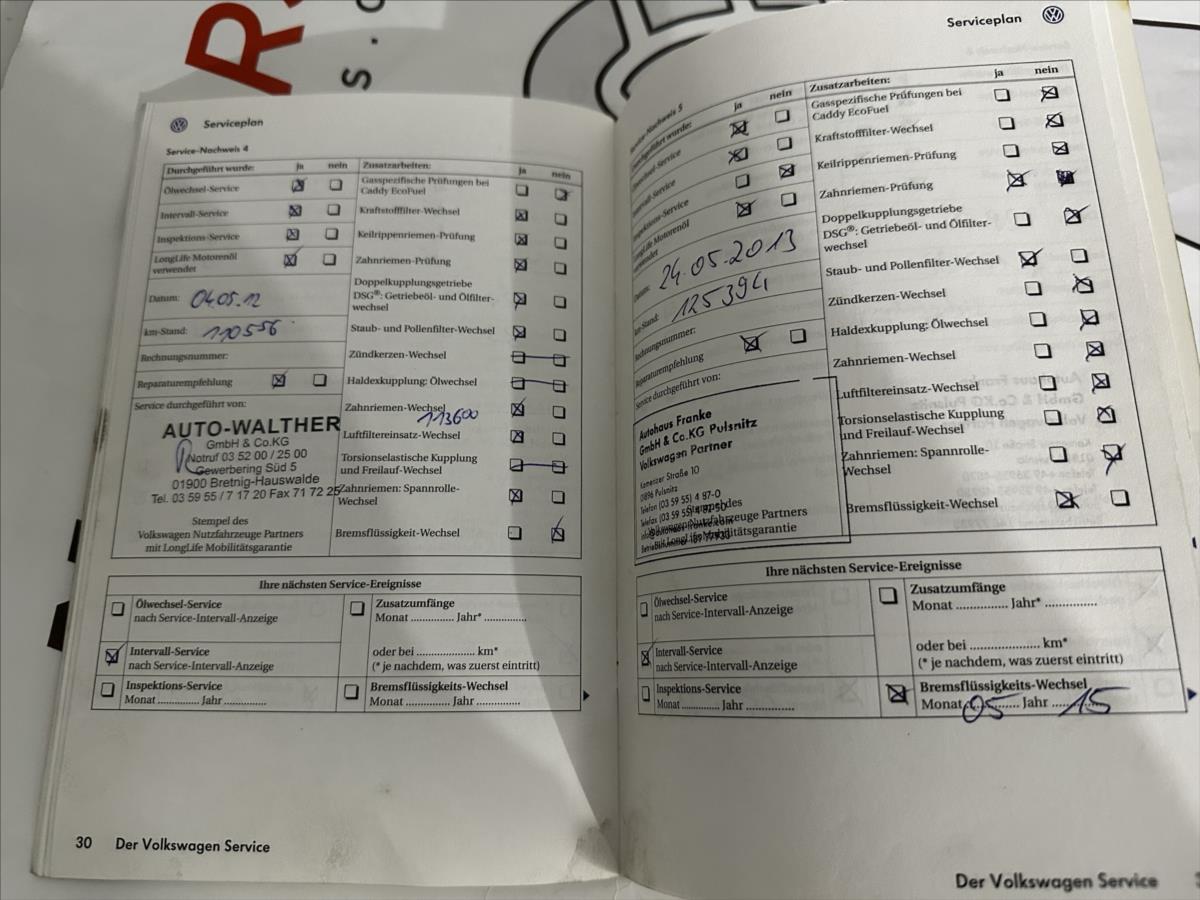 R
S.C
Serviceplan
Service-Nachweis 4
Durchgeführt wurde: ja nein
Ölwechsel-Service
Intervall-Service
Inspektions-Service
LongLife Motorenöl
verwendet
Datum: 04.05.12
km-Stand: 110556
Rechnungsnummer:
Reparaturempfehlung
Service durchgeführt von:
AUTO-WALTHER
GmbH & Co.KG
Notruf 03 52 00 / 25 00
Gewerbering Süd 5
01900 Bretnig-Hauswalde
Tel. 03 59 55 / 7 17 20 Fax 71 72 25
Stempel des
Volkswagen Nutzfahrzeuge Partners
mit LongLife Mobilitätsgarantie
Zusatzarbeiten: ja nein
Gasspezifische Prüfungen bei
Caddy EcoFuel
Kraftstofffilter-Wechsel
Keilrippenriemen-Prüfung
Zahnriemen-Prüfung
Doppelkupplungsgetriebe
DSG®: Getriebeöl- und Ölfilter-
wechsel
Staub- und Pollenfilter-Wechsel
Zündkerzen-Wechsel
Haldexkupplung: Ölwechsel
Zahnriemen-Wechsel
113600
Luftfiltereinsatz-Wechsel
Torsionselastische Kupplung
und Freilauf-Wechsel
Zahnriemen: Spannrolle-
Wechsel
Bremsflüssigkeit-Wechsel
Ihre nächsten Service-Ereignisse
Ölwechsel-Service
nach Service-Intervall-Anzeige
Intervall-Service
nach Service-Intervall-Anzeige
Inspektions-Service
Monat .............. Jahr ..............
Zusatzumfänge
Monat .............. Jahr* ..............
oder bei .................... km*
(* je nachdem, was zuerst eintritt)
Bremsflüssigkeits-Wechsel
Monat .............. Jahr ..............
30 Der Volkswagen Service
Serviceplan
Service-Nachweis 5
Durchgeführt wurde: ja nein
Ölwechsel-Service
Intervall-Service
Inspektions-Service
LongLife Motorenöl
verwendet
Datum: 24.05.2013
km-Stand: 125394
Rechnungsnummer:
Reparaturempfehlung
Service durchgeführt von:
Autohaus Franke
GmbH & Co.KG Pulsnitz
Volkswagen Partner
Kamenzer Straße 10
01896 Pulsnitz
Telefon (03 59 55) 4 87-0
Telefax (03 59 55) 4 87 50
Stempel des
Volkswagen Nutzfahrzeuge Partners
mit LongLife Mobilitätsgarantie
Zusatzarbeiten: ja nein
Gasspezifische Prüfungen bei
Caddy EcoFuel
Kraftstofffilter-Wechsel
Keilrippenriemen-Prüfung
Zahnriemen-Prüfung
Doppelkupplungsgetriebe
DSG®: Getriebeöl- und Ölfilter-
wechsel
Staub- und Pollenfilter-Wechsel
Zündkerzen-Wechsel
Haldexkupplung: Ölwechsel
Zahnriemen-Wechsel
Luftfiltereinsatz-Wechsel
Torsionselastische Kupplung
und Freilauf-Wechsel
Zahnriemen: Spannrolle-
Wechsel
Bremsflüssigkeit-Wechsel
Ihre nächsten Service-Ereignisse
Ölwechsel-Service
nach Service-Intervall-Anzeige
Intervall-Service
nach Service-Intervall-Anzeige
Inspektions-Service
Monat .............. Jahr ..............
Zusatzumfänge
Monat .............. Jahr* ..............
oder bei .................... km*
(* je nachdem, was zuerst eintritt)
Bremsflüssigkeits-Wechsel
Monat 05 Jahr 15
Der Volkswagen Service